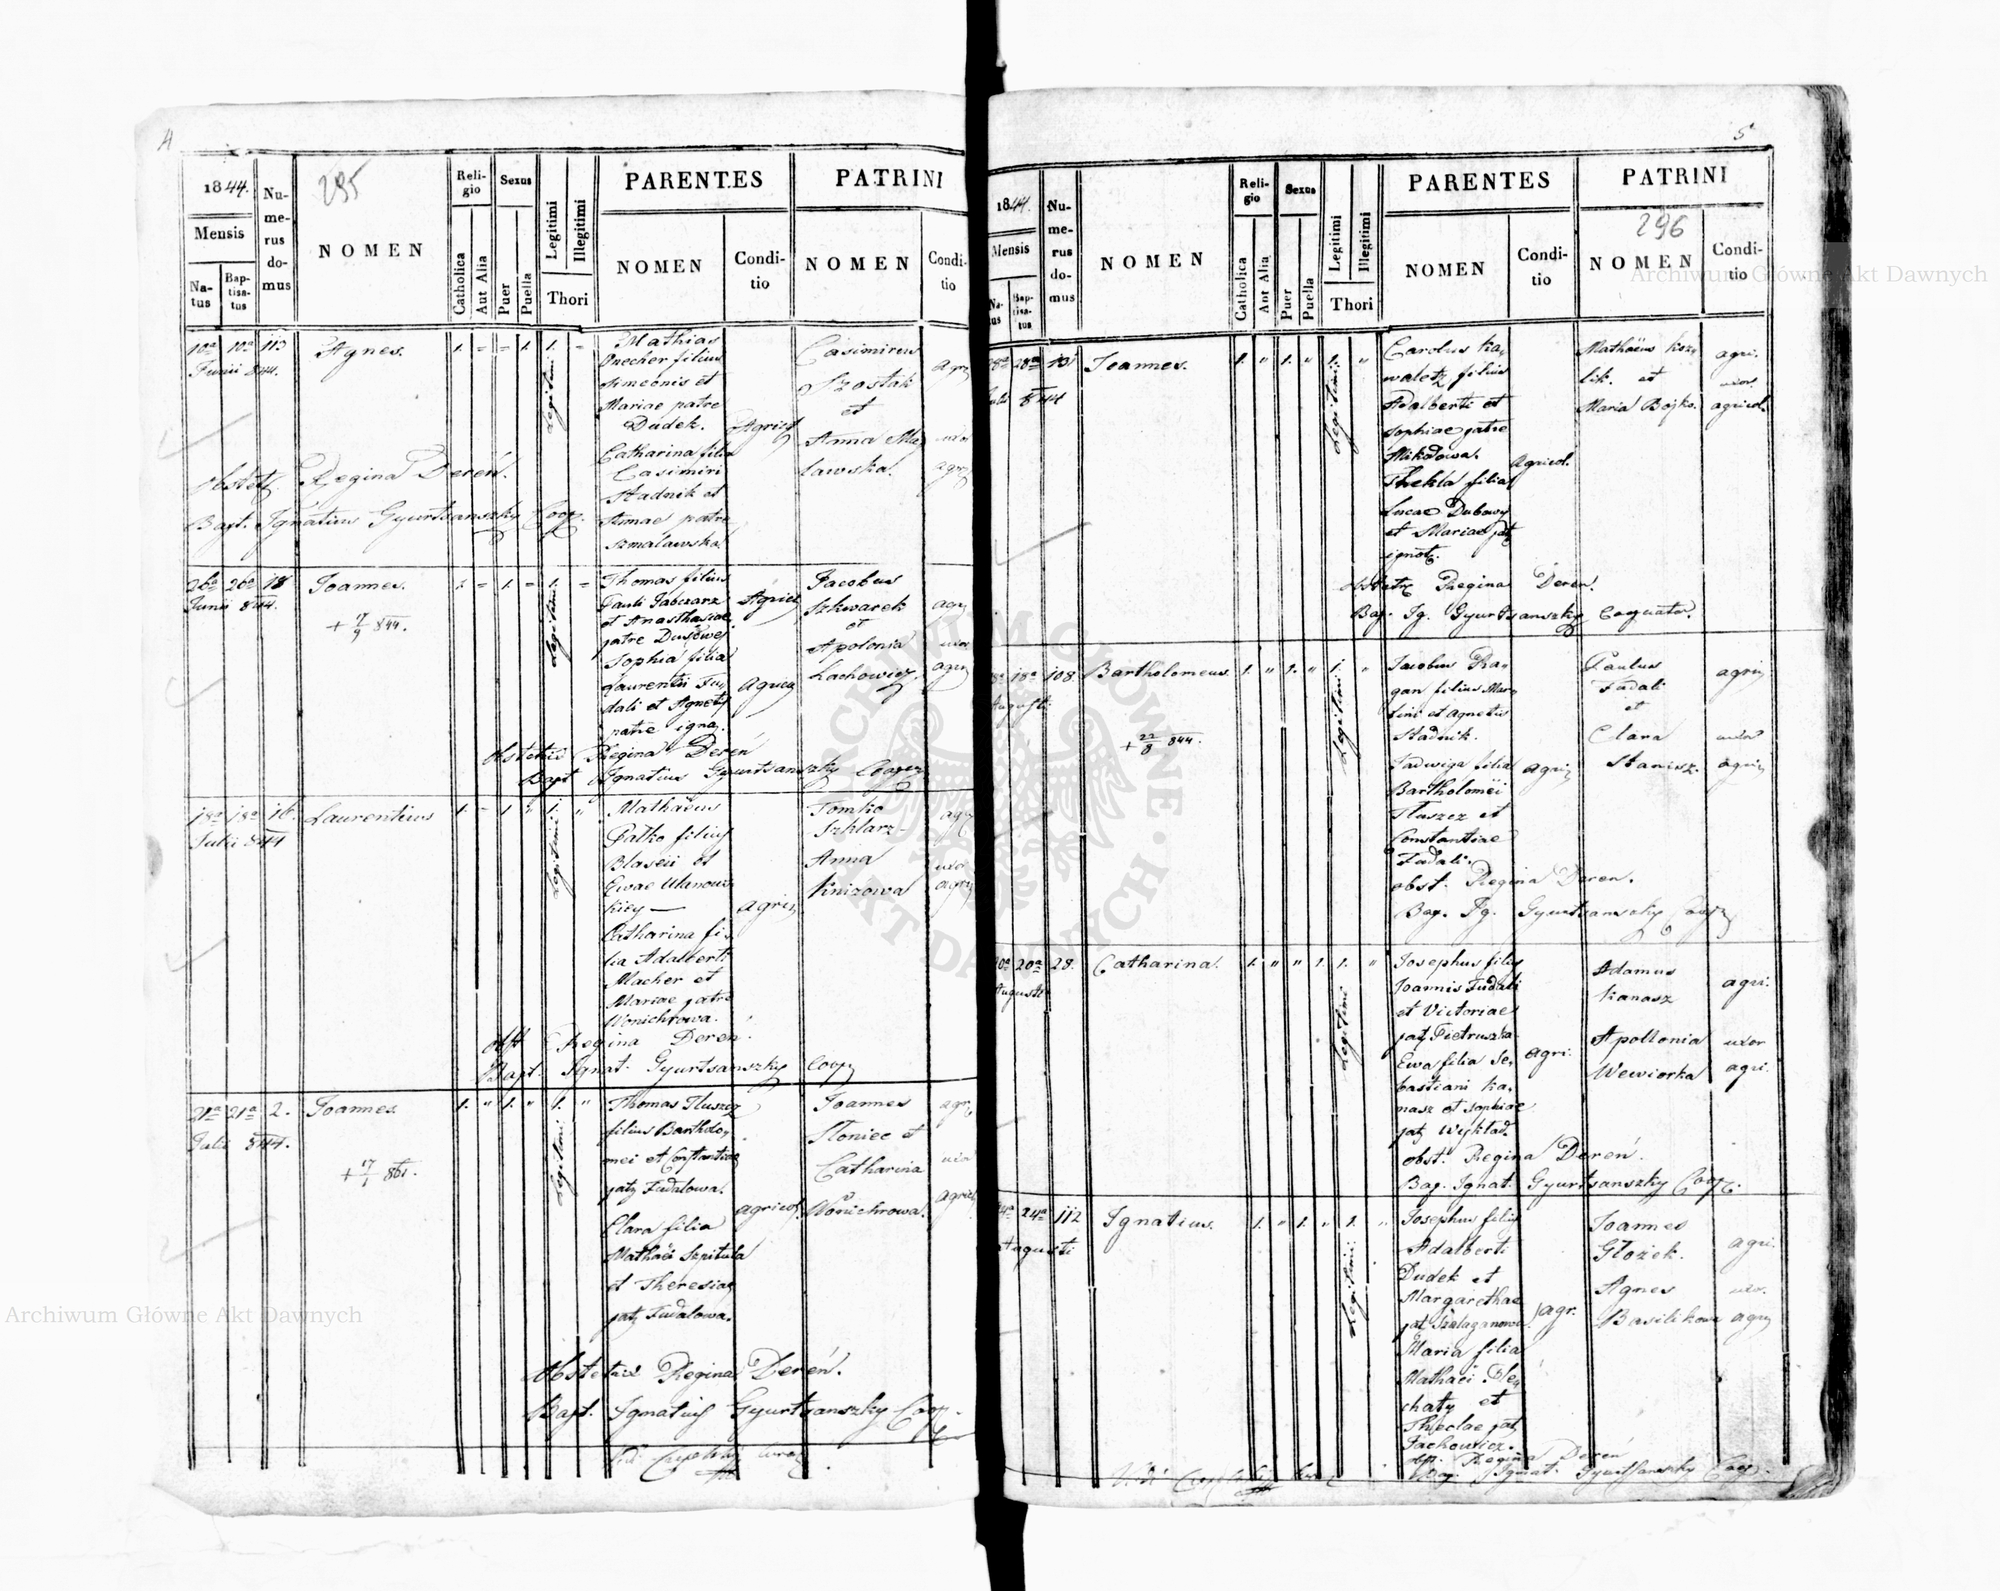 4
295
1844.
Mensis
Natus
Baptisatus
Numerus domus
NOMEN
Religio
Catholica
Aut Alia
Sexus
Puer
Puella
Legitimi
Illegitimi
Thori
PARENTES
NOMEN
Conditio
PATRINI
NOMEN
Conditio
10a 10a 113 Agnes. 1. = = 1. 1. =
Junii 844.
Legitimi
Mathias
Onecher filius
Simeonis et
Mariae patre
Dudek.
Agricol
Catharina filia
Casimiri
Stadnik et
Annae patre
Szmalawska.
Casimirus
Szostak
et
Anna Ma
lawska.
agr
uxor
agr
Obstet Regina Dereń.
Bapt. Ignatius Gyurtsanszky Coop.
26a 26a 18 Joannes. 1. = 1. = 1. =
Junii 844.
+ 7/9 844.
Legitimi
Thomas filius
Pauli Fabczarz
et Anasthasiae
patre
Sophia filia
Laurentii Fu
dali et Agnetis
patre igno.
Agricol
Agricol
Jacobus
Szkwarek
et
Apolonia
Lachowicz
agr
uxor
agr
Obstetrix Regina Dereń
Bapt Ignatius Gyurtsanszky Cooper
18a 18a 16. Laurentius 1. - 1 " 1. "
Julii 844
Legitimi
Mathaeus
Palko filius
Blasii et
Ewae Ulanows
kiey —
Catharina fi-
lia Adalberti
Macher et
Mariae patre
Wonichrowa.
agric
Tomko
Szklarz-
Anna
Knizowa
agr
uxor
agr
Obst Regina Dereń.
Bapt Ignat. Gyurtsanszky Coop
21a 21a 2. Joannes. 1. " 1. " 1. "
Julii 844.
+ 17/1 861.
Legitimi
Thomas Tluszcz
filius Bartholo,
mei et Constantiae
pat Fudalowa.
Clara filia
Mathaei Szpitula
et Theresiae
pat Fudalowa.
agricol.
Joannes
Sloniec et
Catharina
Wonichrowa.
agr
uxor
agricol
Obstetrix Regina Dereń.
Bapt. Ignatius Gyurtsanszky Coop.
5
296
1844.
Mensis
Natus
Baptisatus
Numerus domus
NOMEN
Religio
Catholica
Aut Alia
Sexus
Puer
Puella
Legitimi
Illegitimi
Thori
PARENTES
NOMEN
Conditio
PATRINI
NOMEN
Conditio
28a 28a 131 Joannes. 1. " 1. " 1. "
Julii 844
Legitimi
Carolus Ka,
waletz filius
Adalberti et
Sophiae patre
Mikodowa.
Thekla filia
Lucae Dubowy
et Mariae pat
ignot.
Agricol.
Mathaeus Kozy
lik. et
Maria Bojko.
agri.
uxor.
agricol.
Obstetr Regina Dereń.
Bap. Ig. Gyurtsanszky Cooperator.
18a 18a 108. Bartholomeus. 1. " 1. " 1. "
Augusti
+ 22/8 844.
Legitimi
Jacobus Dra-
gan filius Mar-
tini et Agnetis
Stadnik.
Jadwiga filia
Bartholomëi
Tluszcz et
Constantiae
Fudali.
agric
Paulus
Fudali
et
Clara
Stanisz.
agric
uxor
agric
obst. Regina Deren.
Bap. Ig. Gyurtsanszky Coop
20a 20a 28. Catharina. 1. " " 1. 1. "
Augusti
Legitimi
Josephus filius
Joannis Fudali
et Victoriae
pat Pietruszka
Ewa filia Se,
bastiani Ka,
nasz et Sophiae
pat Wykład.
agri.
Adamus
Kanasz
Apollonia
Wewiorka
agri.
uxor
agri.
obst. Regina Dereń.
Bap. Ignat. Gyurtsanszky Coop.
24a 24a 112 Ignatius. 1. " 1. " 1. "
Augusti
Legitimi
Josephus filius
Adalberti
Dudek et
Margarethae
pat Szalaganowa
Maria filia
Mathaei Ple,
chaty et
Theclae pat
Fachowicz.
agr.
Joannes
Głozek.
Agnes
Basilikowa
agri.
uxor.
agric
obst. Regina Dereń
Bap. Ignat. Gyurtsanszky Coop.
Archiwum Główne Akt Dawnych
ARCHIWUM GŁÓWNE • AKT DAWNYCH •
Archiwum Główne Akt Dawnych